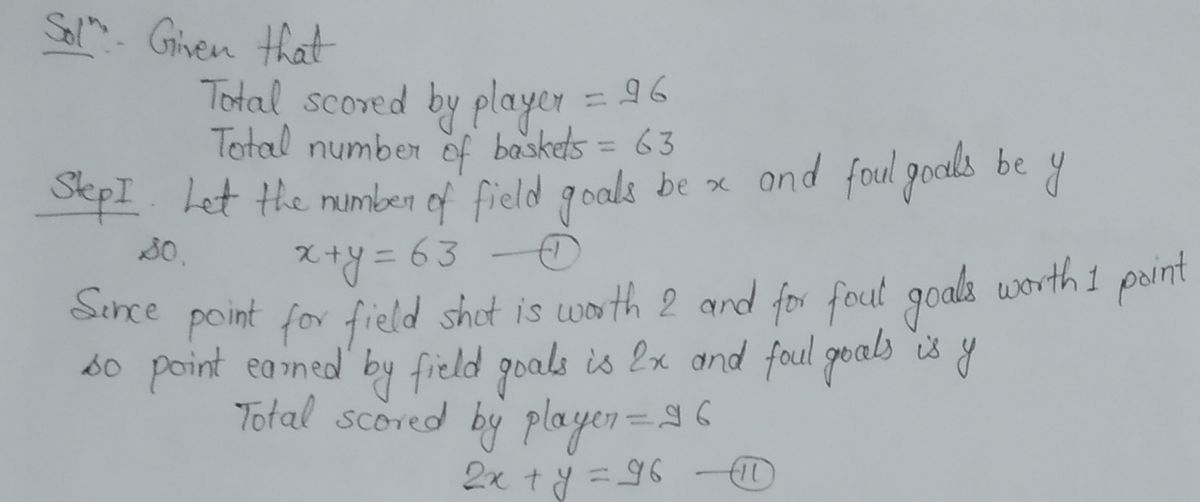 Solⁿ.- Given that
Total scored by player = 96
Total number of baskets = 63
Step I. Let the number of field goals be x and foul goals be y
so, x+y = 63 —(I)
Since point for field shot is worth 2 and for foul goals worth 1 point
so point earned by field goals is 2x and foul goals is y
Total scored by player = 96
2x + y = 96 —(II)